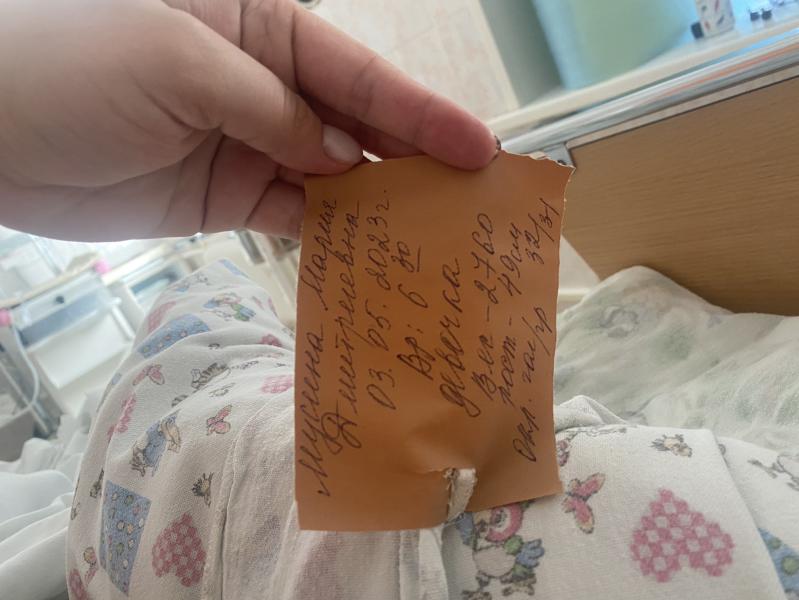 Мусина Мария
Дмитриевна
03.05.2023г.
Вр: 6 30
девочка
Вес - 2760
рост - 49см
Окр. гол/гр 32/31